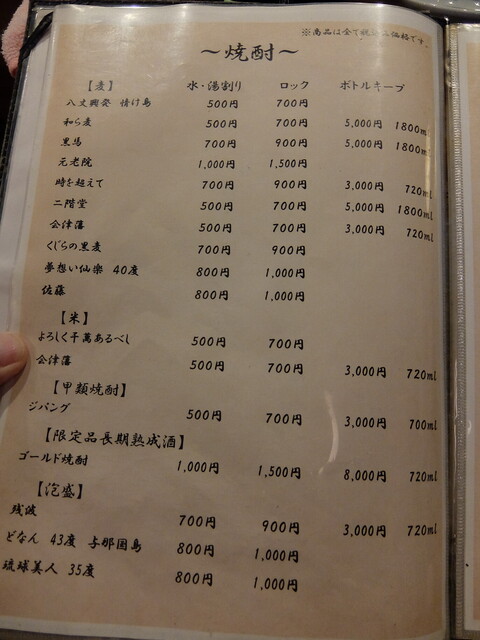 ※商品は全て税込み価格です。
～焼酎～
【麦】 水・湯割り ロック ボトルキープ
八丈興発 情け島 500円 700円
和ら麦 500円 700円 5,000円 1800ml
黒馬 700円 900円 5,000円 1800ml
元老院 1,000円 1,500円
時を超えて 700円 900円 3,000円 720ml
二階堂 500円 700円 5,000円 1800ml
会津藩 500円 700円 3,000円 720ml
くじらの黒麦 700円 900円
夢想い仙楽 40度 800円 1,000円
佐藤 800円 1,000円
【米】
よろしく千萬あるべし 500円 700円
会津藩 500円 700円 3,000円 720ml
【甲類焼酎】
ジパング 500円 700円 3,000円 700ml
【限定品長期熟成酒】
ゴールド焼酎 1,000円 1,500円 8,000円 720ml
【泡盛】
残波 700円 900円 3,000円 720ml
どなん 43度 与那国島 800円 1,000円
琉球美人 35度 800円 1,000円